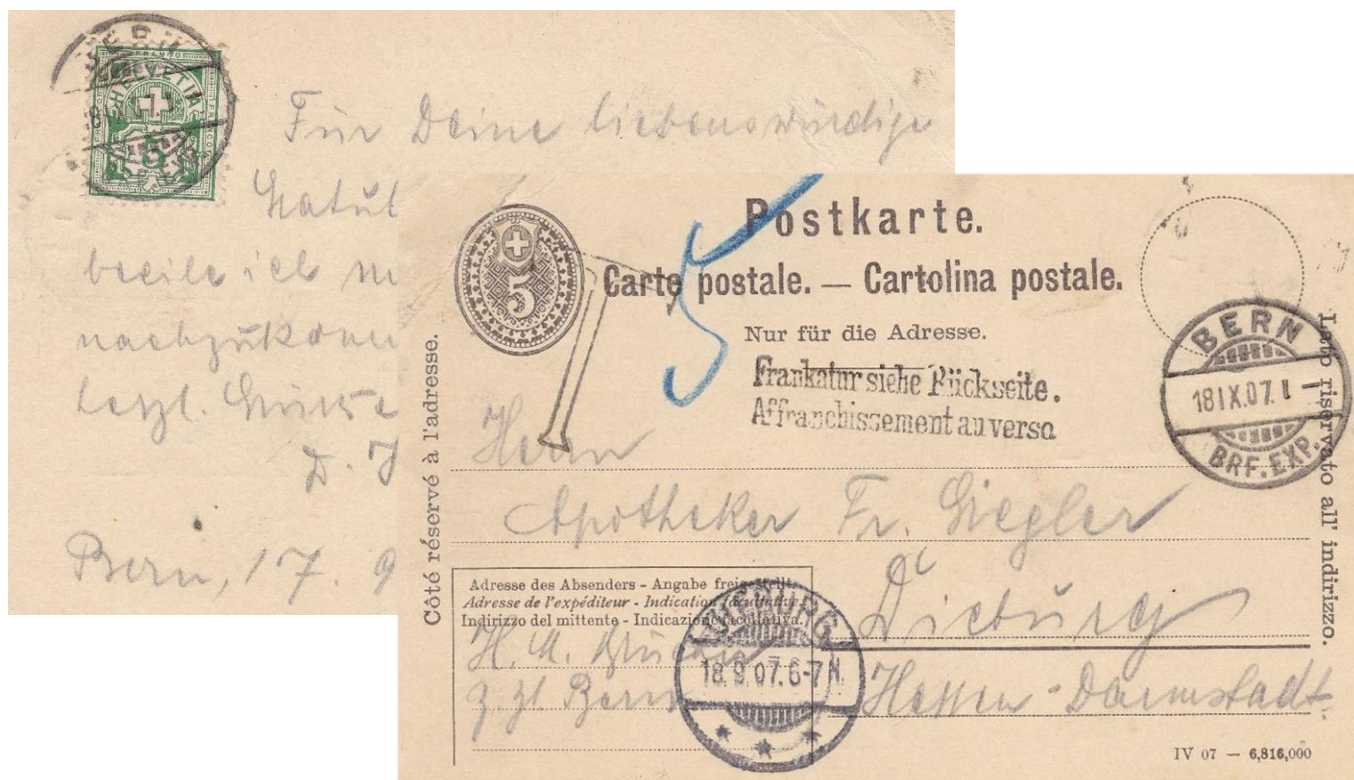 BERN
FRANCO
HELVETIA
5
Für Deine liebenswürdige
beeile ich
Bern, 17. 9
5
Postkarte.
Carte postale. — Cartolina postale.
Nur für die Adresse.
Frankatur siehe Rückseite.
Affranchissement au verso
T
5
BERN
18 IX.07. I
BRF. EXP.
Côté réservé à l'adresse.
Lato riservato all' indirizzo.
Herrn
Apotheker Fr. Giegler
Dieburg
Hessen-Darmstadt.
Adresse des Absenders - Angabe freigestellt.
Adresse de l'expéditeur - Indication facultative.
Indirizzo del mittente - Indicazione facoltativa.
H. A.
z. Zt Bern
DIEBURG
18.9.07.6-7 N.
IV 07 — 6,816,000